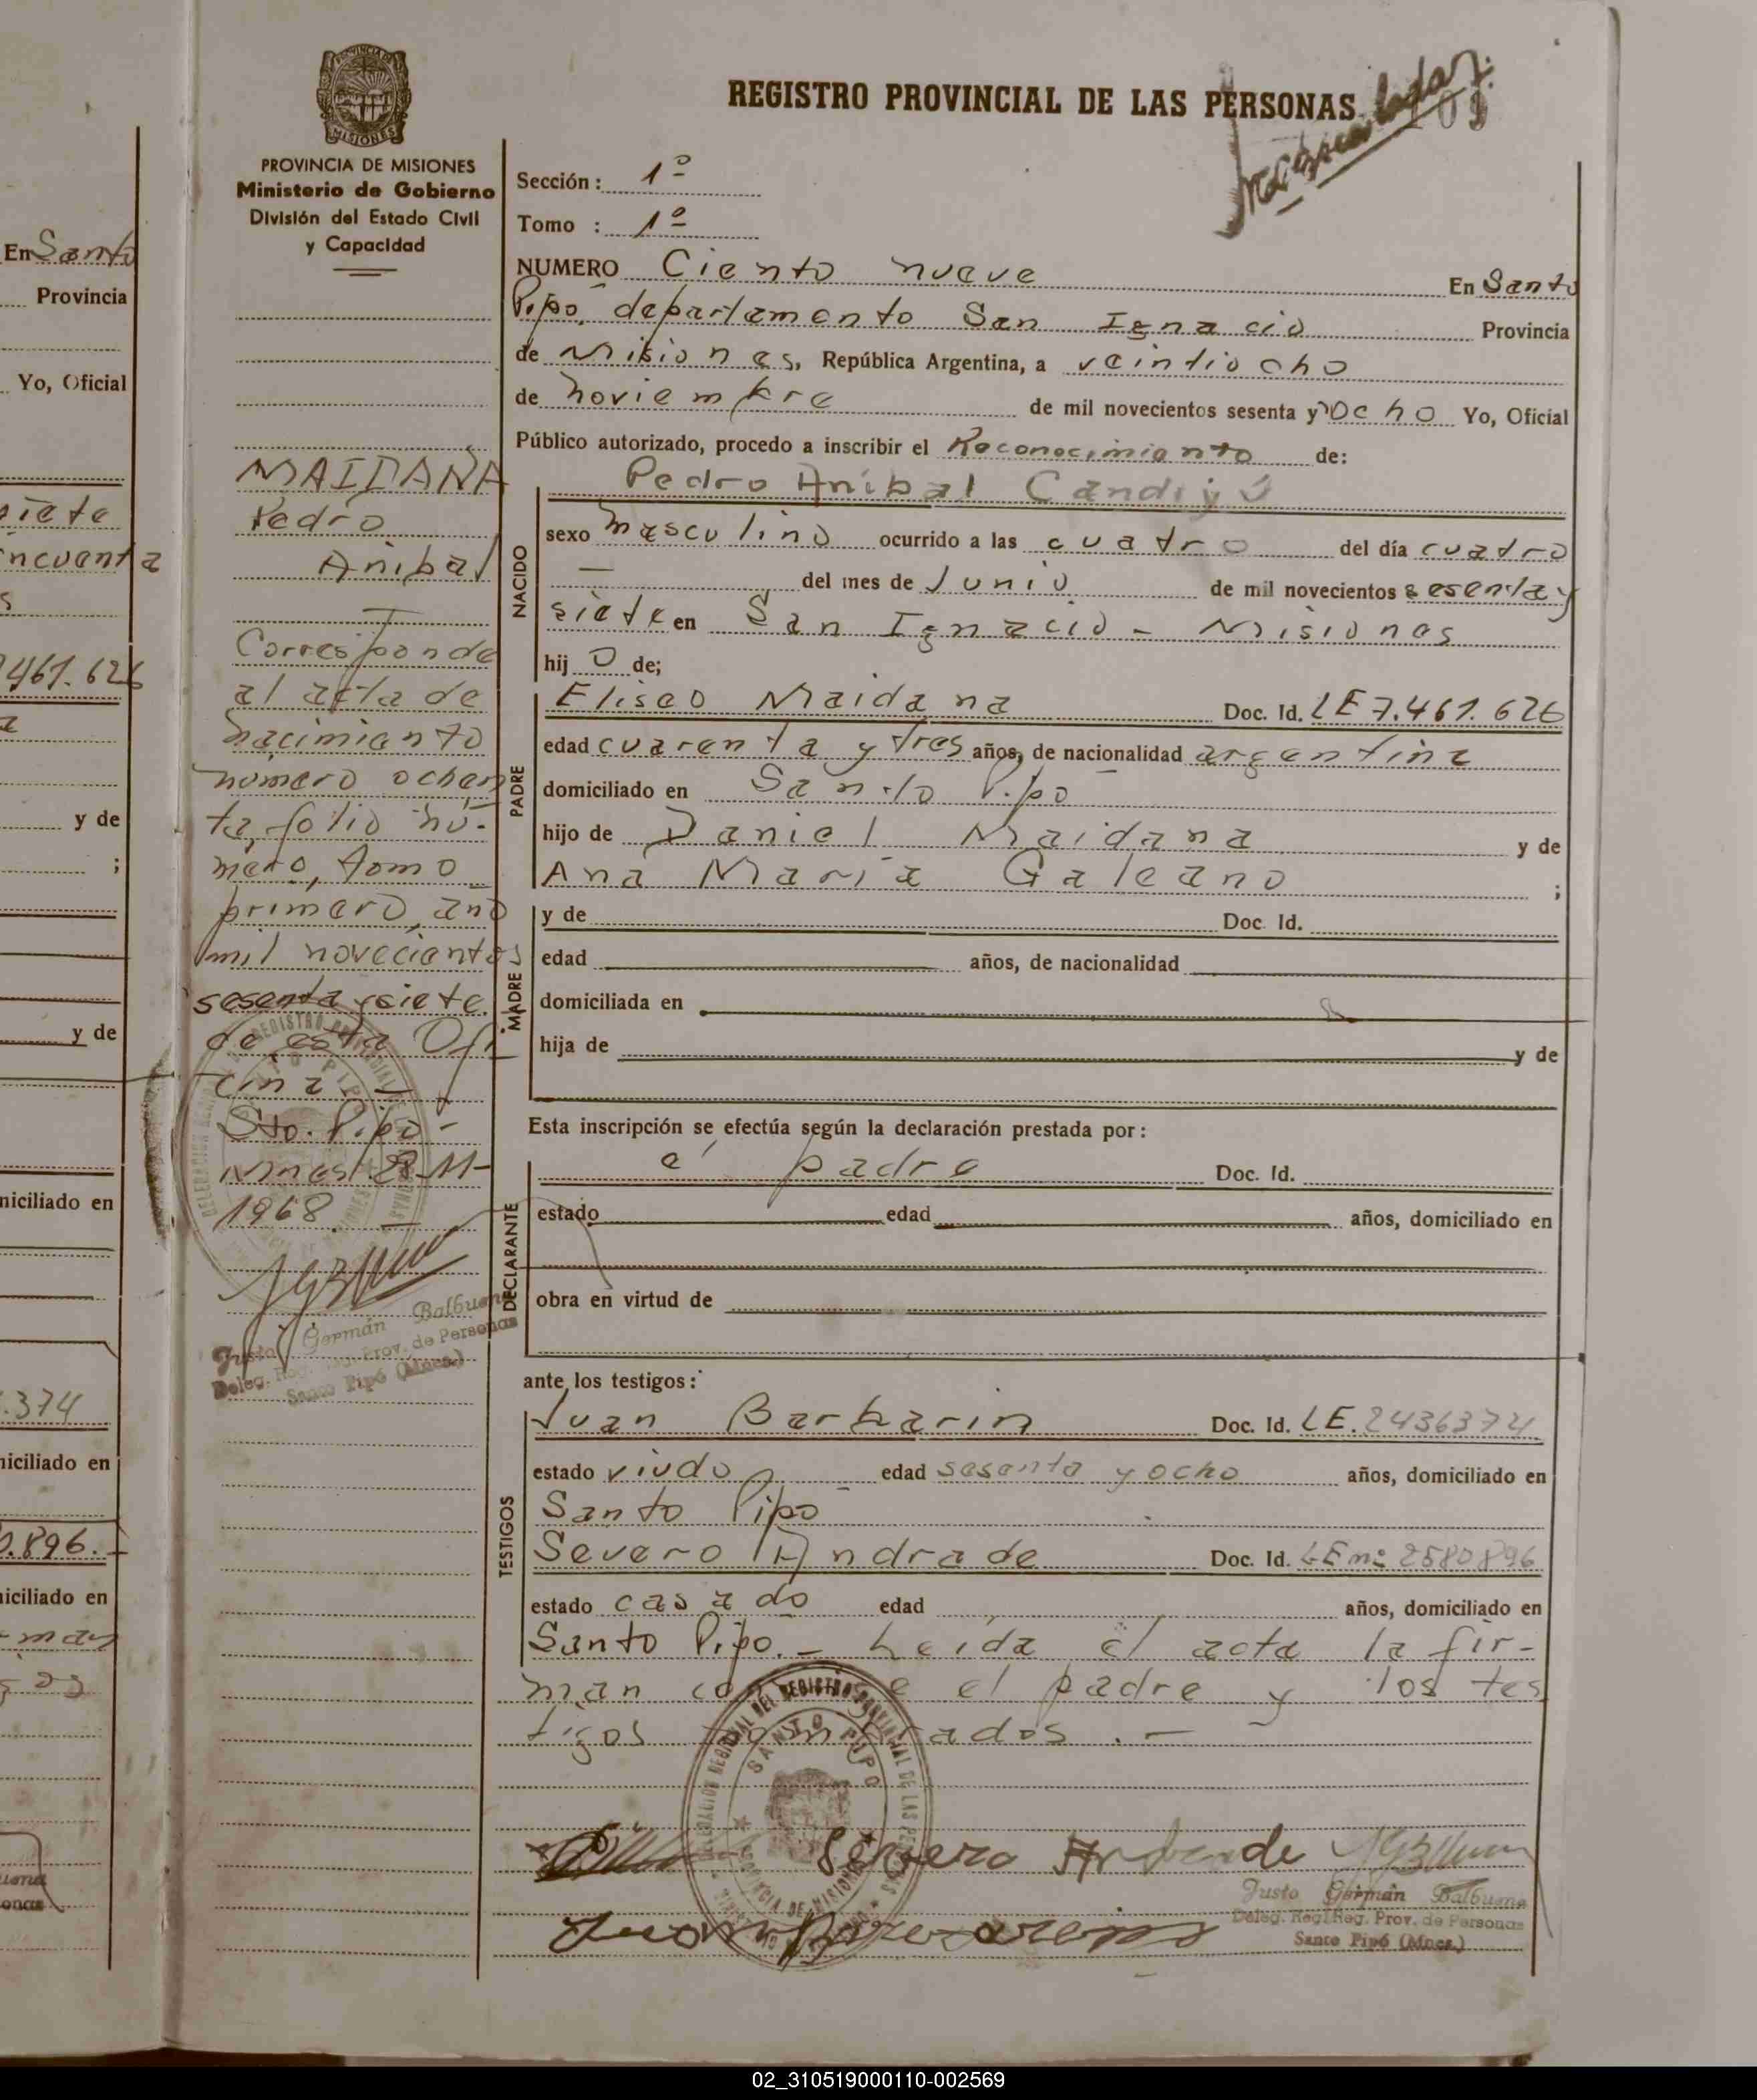 REGISTRO PROVINCIAL DE LAS PERSONAS
109
PROVINCIA DE MISIONES
Ministerio de Gobierno
División del Estado Civil
y Capacidad
MAIDANA
Pedro
Anibal
Corresponde
al acta de
nacimiento
número ochen
ta folio nú-
mero, tomo
primero, año
mil novecientos
sesenta y siete
de esta Ofi
cina
Sto. Pipó-
Mnes. 28-11-
1968.
Justo Germán Balbuena
Deleg. Reg. Prov. de Personas
Santo Pipó (Mnes.)
Sección: 1º
Tomo : 1º
NUMERO Ciento nueve En Santo
Pipó, departamento San Ignacio Provincia
de Misiones, República Argentina, a veintiocho
de noviembre de mil novecientos sesenta y ocho Yo, Oficial
Público autorizado, procedo a inscribir el Reconocimiento de:
NACIDO
Pedro Anibal Candiyú
sexo masculino ocurrido a las cuatro del día cuatro
— del mes de Junio de mil novecientos sesenta y
siete en San Ignacio - Misiones
hij o de;
PADRE
Eliseo Maidana Doc. Id. LE 7.461.626
edad cuarenta y tres años, de nacionalidad argentina
domiciliado en Santo Pipó
hijo de Daniel Maidana y de
Ana María Galeano ;
MADRE
y de Doc. Id.
edad años, de nacionalidad
domiciliada en
hija de y de
Esta inscripción se efectúa según la declaración prestada por:
DECLARANTE
el padre Doc. Id.
estado edad años, domiciliado en
obra en virtud de
ante los testigos:
TESTIGOS
Juan Barbarin Doc. Id. LE. 2436374
estado viudo edad sesenta y ocho años, domiciliado en
Santo Pipó
Severo Andrade Doc. Id. LE nº 2580896
estado casado edad años, domiciliado en
Santo Pipó. - Leída el acta la fir-
man el padre y los tes
tigos .-
SANTO PIPO
Severo Andrade
Justo Germán Balbuena
Deleg. Regl. Reg. Prov. de Personas
Santo Pipó (Mnes.)
En Santo
Provincia
Yo, Oficial
siete
incuenta
461.626
y de
;
y de
miciliado en
.374
miciliado en
0.896.
miciliado en
02_310519000110-002569